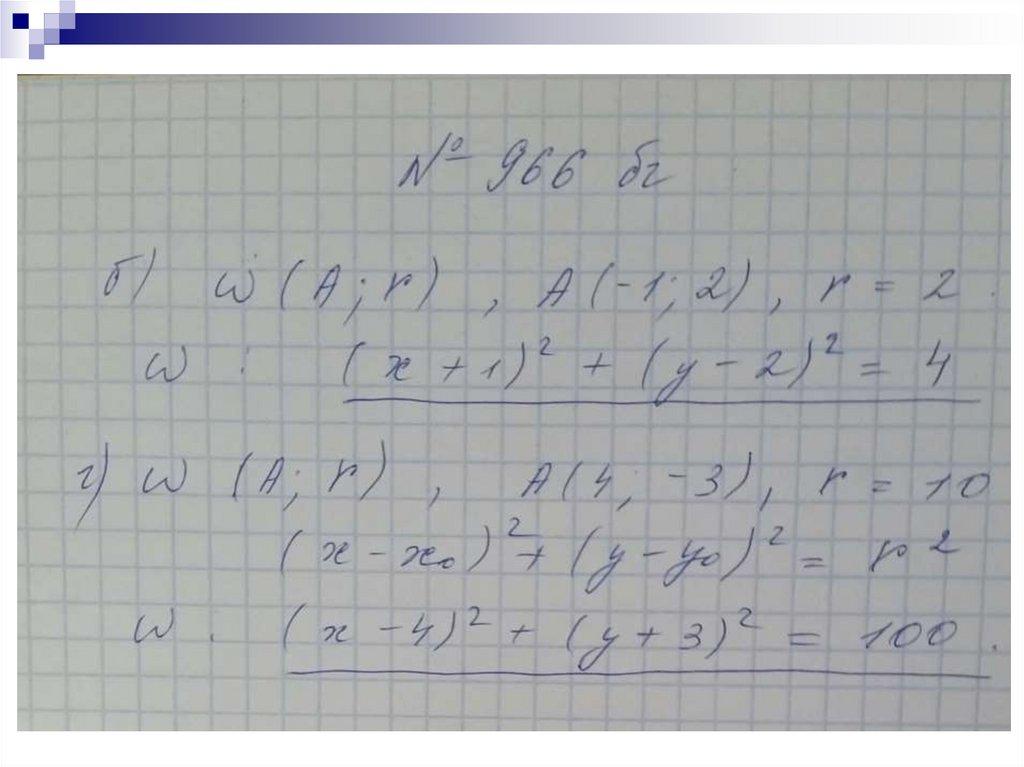 № 966 бг
б) ω (A; r) , A(-1; 2), r = 2.
ω : (x + 1)² + (y - 2)² = 4
г) ω (A; r) , A(4; -3), r = 10
(x - x₀)² + (y - y₀)² = r²
ω . (x - 4)² + (y + 3)² = 100.